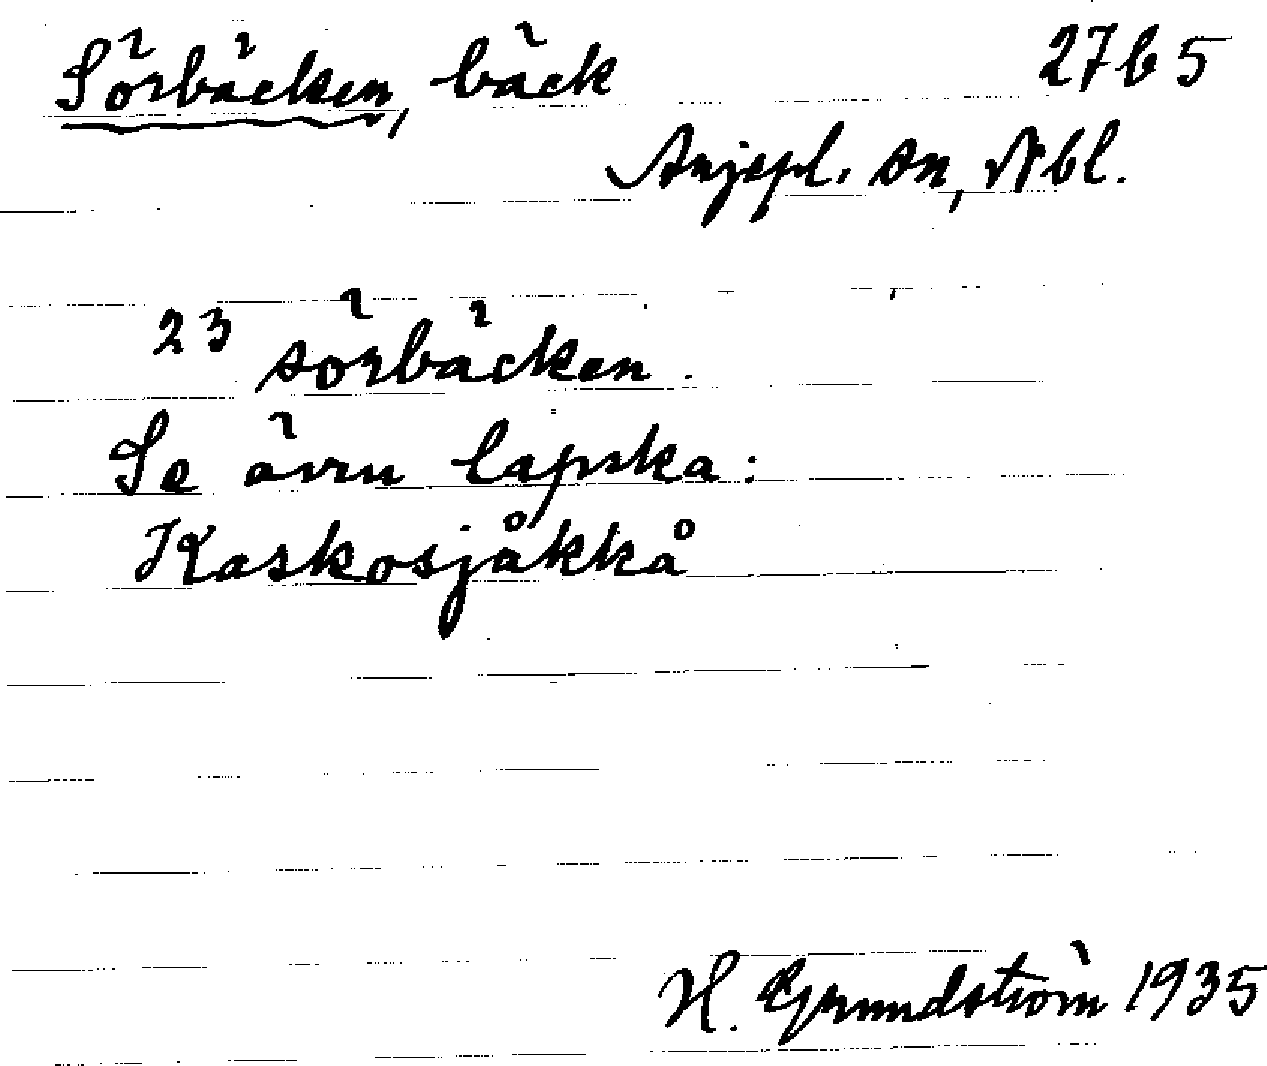 Sörbäcken, bäck 27b5
Arjepl. sn, Nbl.
23 sörbäcken.
Se även lapska:
Kaskosjåkkå
H. Grundström 1935